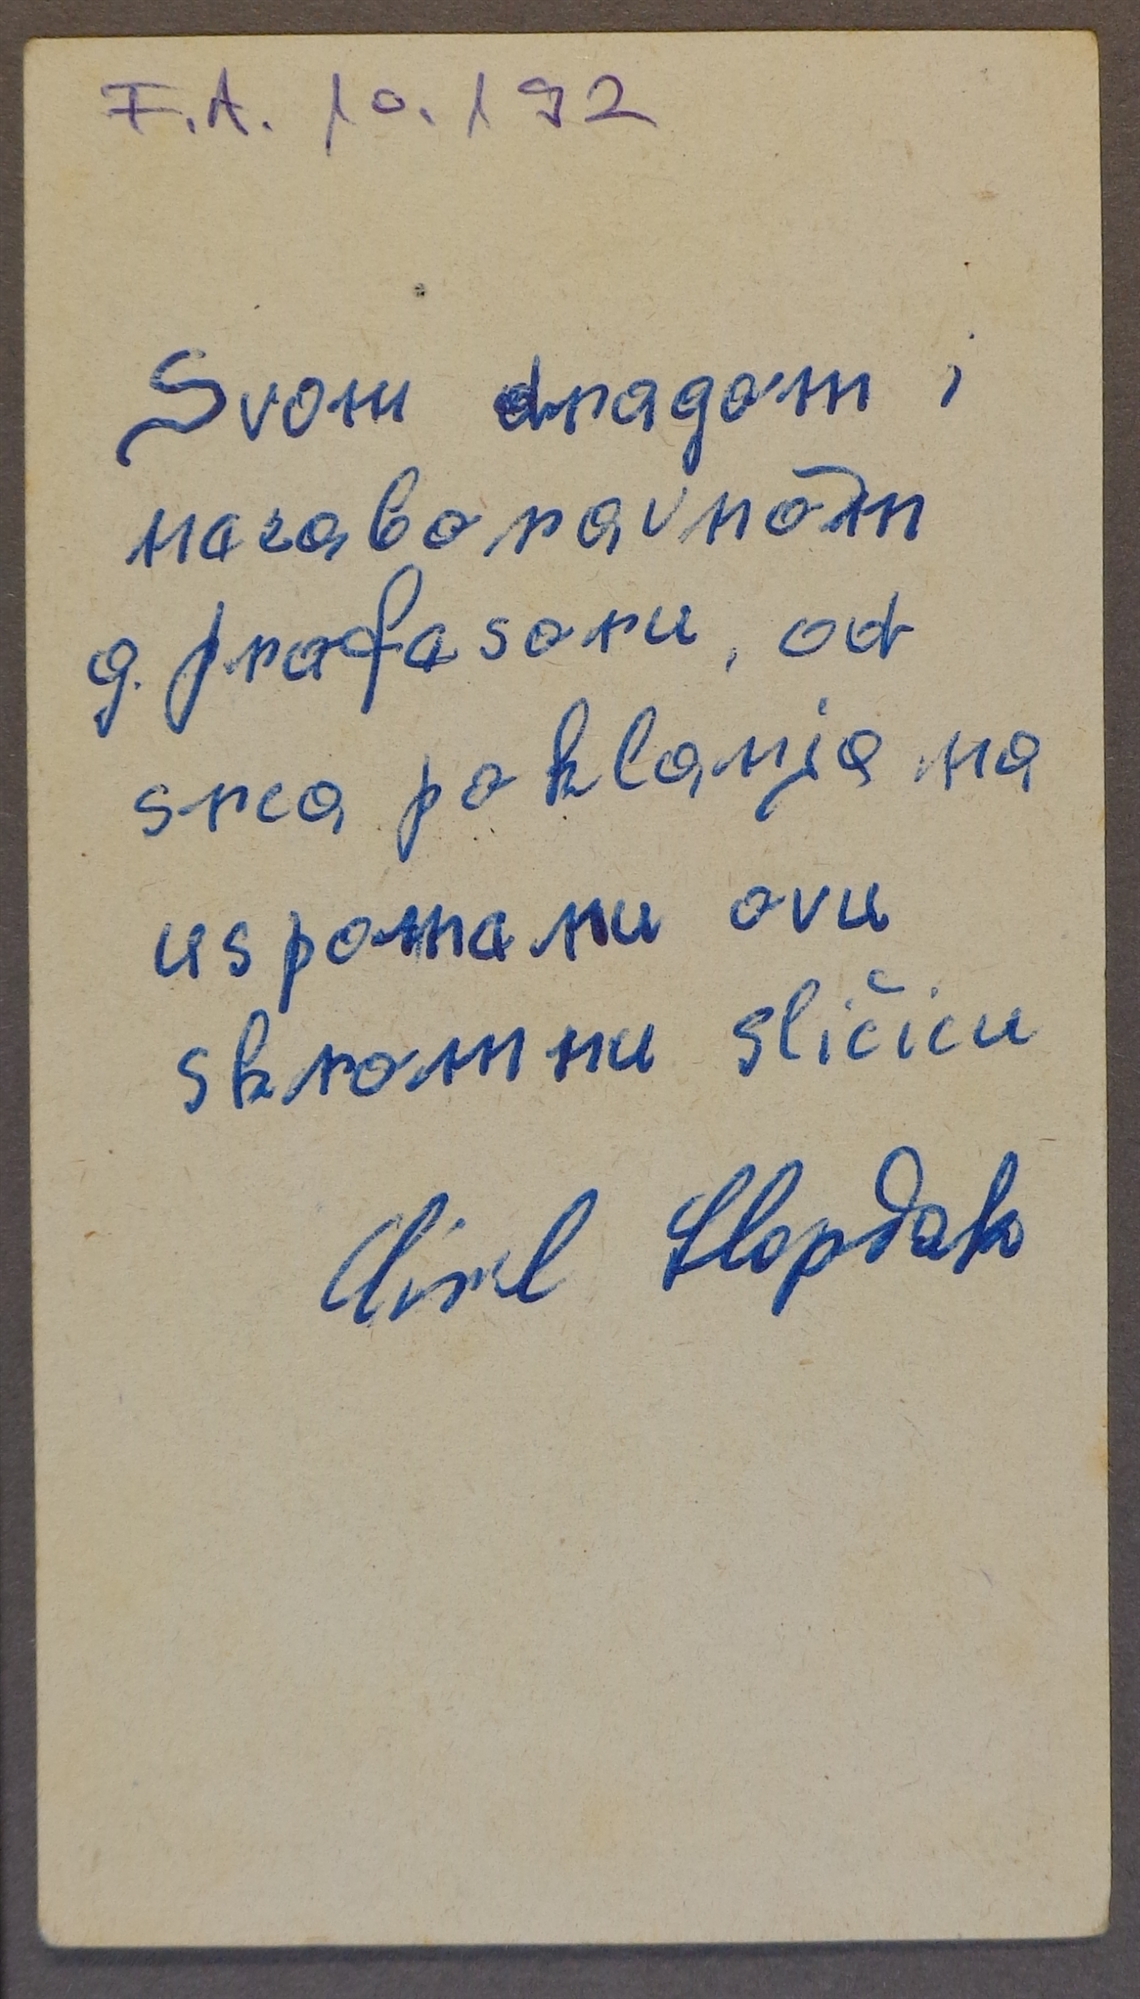 F.A. 10.192
Svom dragom i
nezaboravnom
g. profesoru, od
srca poklanja na
uspomenu ovu
skromnu sličicu
Ciril